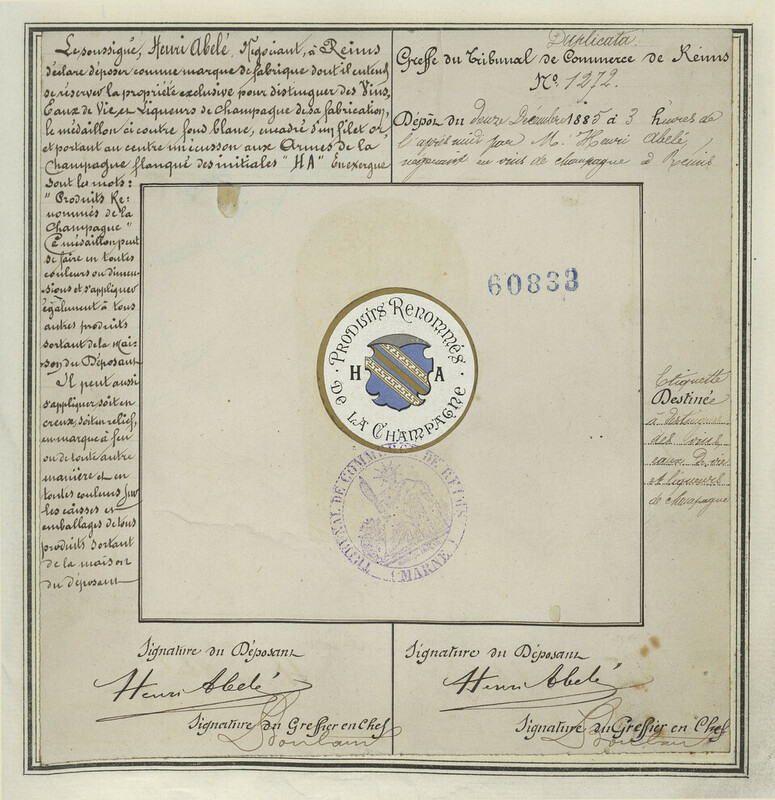 Le soussigné, Henri Abelé, Négociant, à Reims
déclare déposer comme marque de fabrique dont il entend
se réserver la propriété exclusive pour distinguer des Vins,
Eaux de Vie, et Liqueurs de Champagne de sa fabrication,
le médaillon ci contre fond blanc, encadré d'un filet or
et portant au centre un écusson aux Armes de la
Champagne flanqué des initiales "HA" En exergue
sont les mots:
"Produits Re:
nommés de la
Champagne"
Ce médaillon peut
se faire en toutes
couleurs ou dimen-
sions et s'appliquer
également à tous
autres produits
sortant de la Mai-
son du Déposant
Il peut aussi
s'appliquer soit en
creux, soit en relief,
en marque à feu
ou de toute autre
manière et en
toutes couleurs sur
les caisses et
emballages de tous
produits sortant
de la maison
du déposant
Duplicata
Greffe du Tribunal de Commerce de Reims
No. 1272.
Dépôt du douze Décembre 1885 à 3 heures de
l'après midi par M. Henri Abelé,
négociant en vins de champagne à Reims
60833
PRODUITS RENOMMÉS
H A
DE LA CHAMPAGNE
TRIBUNAL DE COMMERCE DE REIMS
(MARNE)
Etiquette
Destinée
à
des vins
eaux de vie
et liqueurs
de champagne
Signature du Déposant
Henri Abelé
Signature du Greffier en Chef
Signature du Déposant
Henri Abelé
Signature du Greffier en Chef